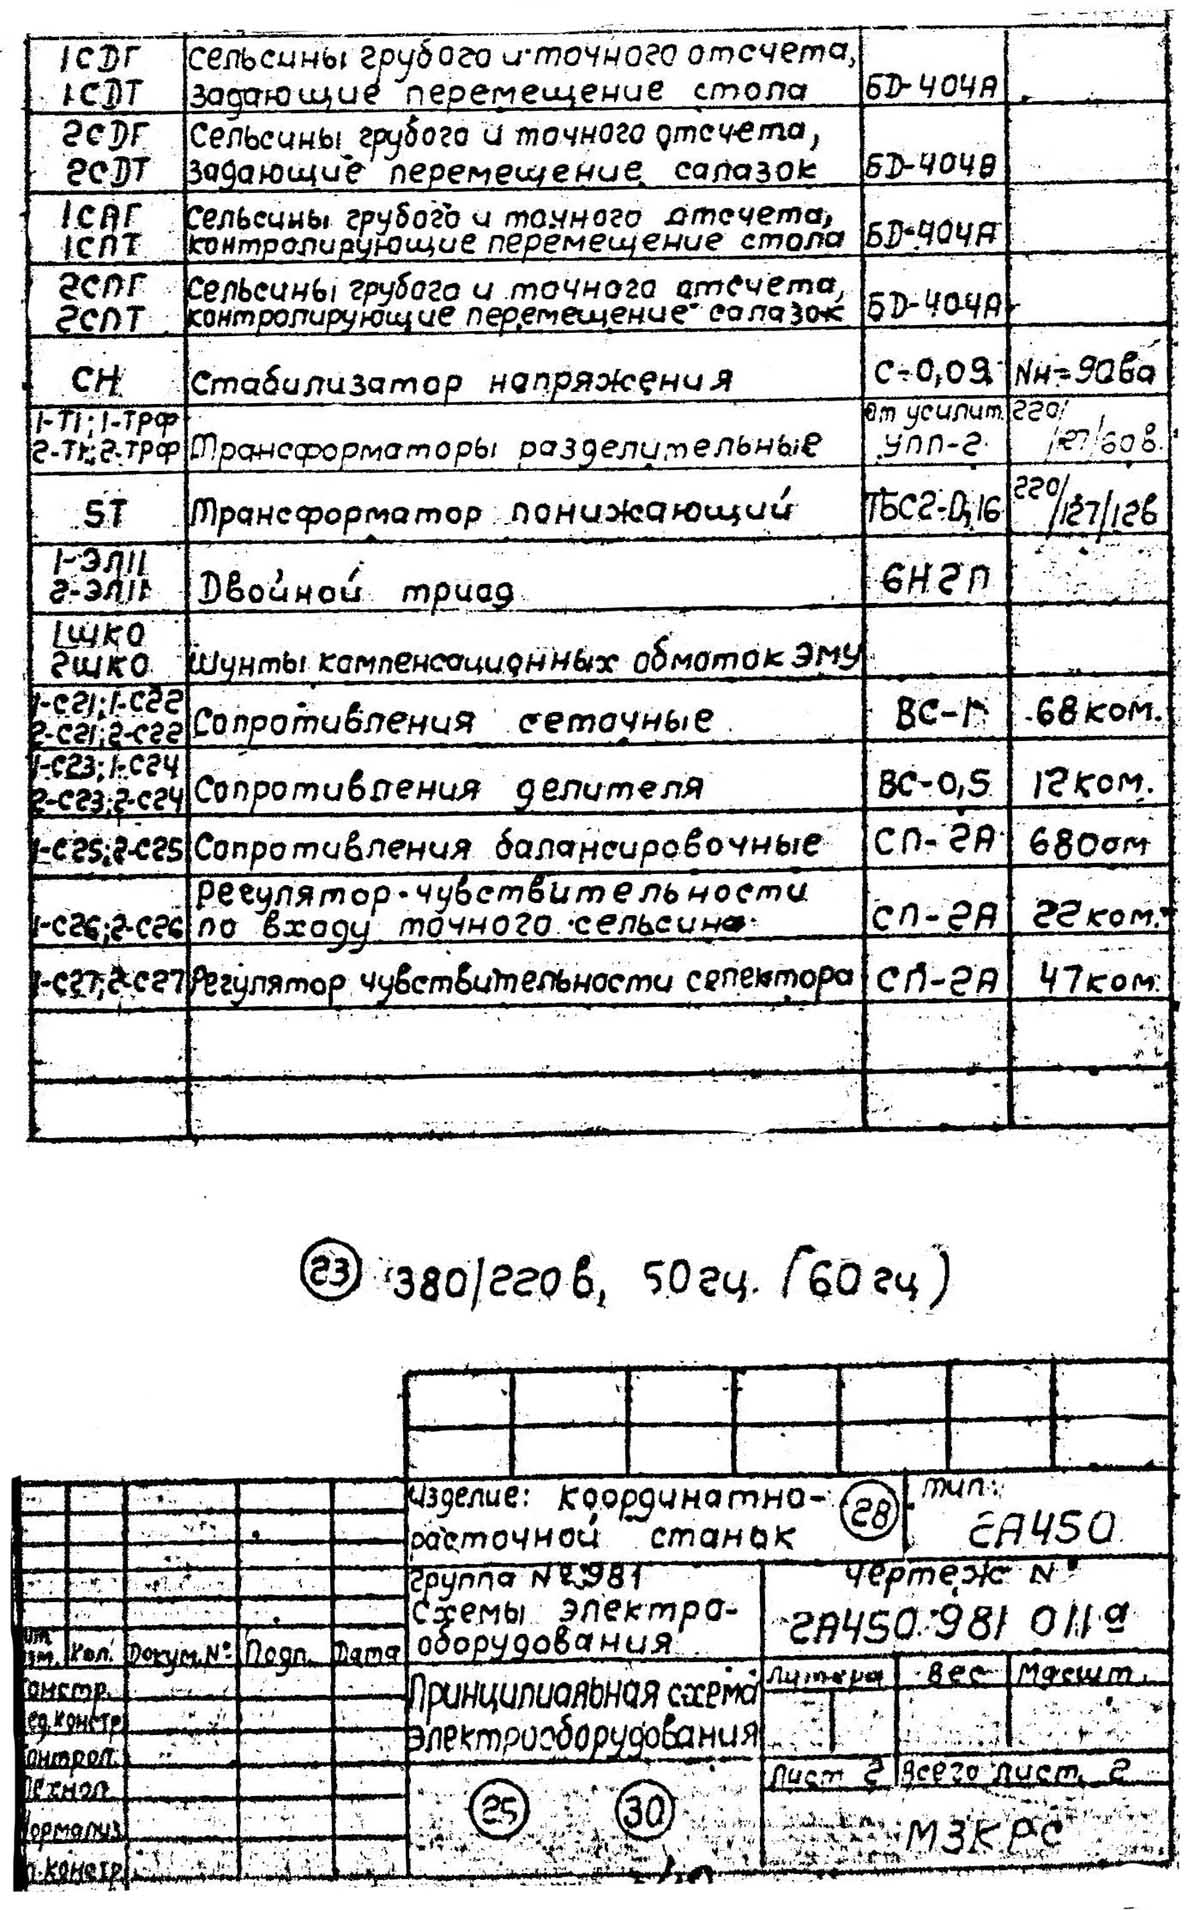 1СДГ
1СДТ
Сельсины грубого и точного отсчета,
задающие перемещение стола
БД-404А
2СДГ
2СДТ
Сельсины грубого и точного отсчета,
задающие перемещение салазок
БД-404В
1САГ
1СПТ
Сельсины грубого и точного отсчета,
контролирующие перемещение стола
БД-404А
2СПГ
2СПТ
Сельсины грубого и точного отсчета,
контролирующие перемещение салазок
БД-404А
СН
Стабилизатор напряжения
С-0,09
Nн=90ва
1-Т1; 1-ТРФ
2-Т1; 2-ТРФ
Трансформаторы разделительные
От усилит.
УПП-2
220/
127/60в.
5Т
Трансформатор понижающий
ТБС2-0,16
220/127/12в
1-ЭЛ11
2-ЭЛ11
Двойной триод
6Н2П
1ШКО
2ШКО
Шунты компенсационных обмоток ЭМУ
1-С21; 1-С22
2-С21; 2-С22
Сопротивления сеточные
ВС-1
68 ком.
1-С23; 1-С24
2-С23; 2-С24
Сопротивления делителя
ВС-0,5
12 ком.
1-С25; 2-С25
Сопротивления балансировочные
СП-2А
680 ом
1-С26; 2-С26
Регулятор чувствительности
по входу точного сельсина
СП-2А
22 ком.
1-С27; 2-С27
Регулятор чувствительности селектора
СП-2А
47 ком.
23 380/220 в, 50 гц. (60 гц)
Изделие: координатно-
расточной станок
28
тип:
2А450
группа № 2.981
схемы электро-
оборудования
Чертеж №
2А450.981 011а
Изм. Кол. Докум. № Подп. Дата
Констр.
Вед. констр
Контрол.
Технол
Нормализ.
Гл. констр.
Принципиальная схема
электрооборудования
Литера Вес Масшт.
Лист 2 Всего лист. 2
25 30
МЗКРС